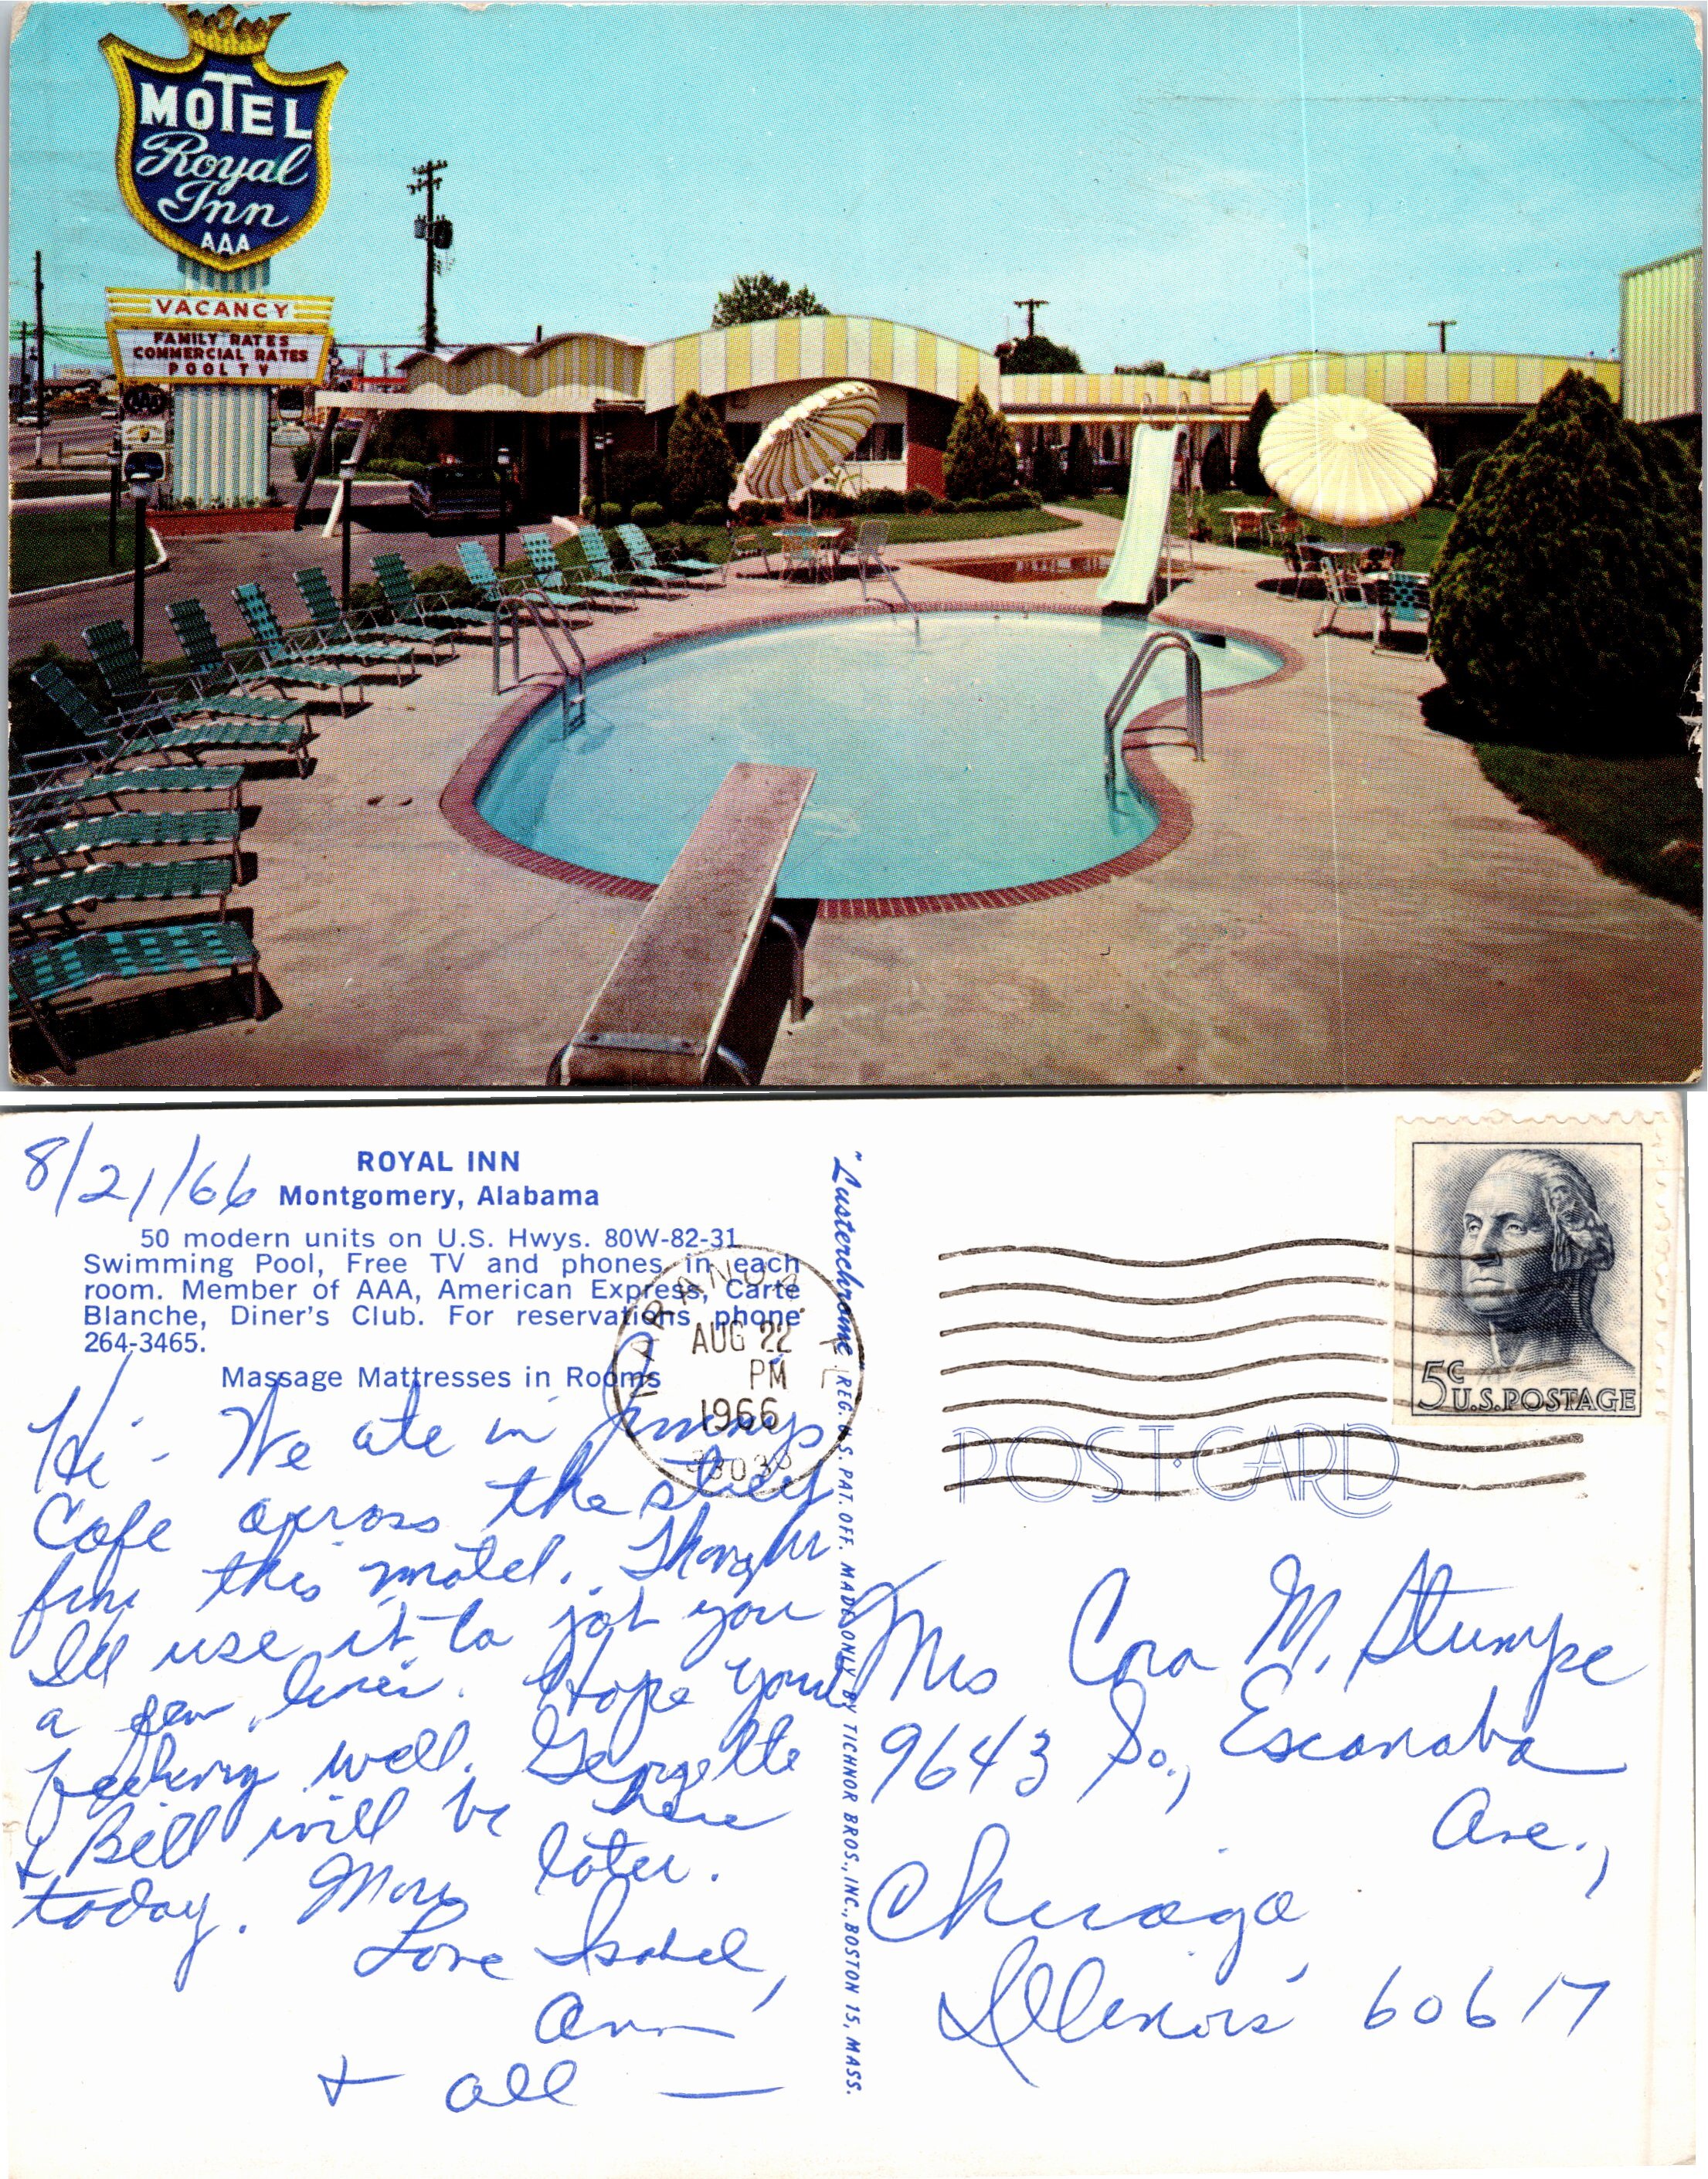 MOTEL
Royal
Inn
AAA
VACANCY
FAMILY RATES
COMMERCIAL RATES
POOL TV
8/21/66
ROYAL INN
Montgomery, Alabama
50 modern units on U.S. Hwys. 80W-82-31
Swimming Pool, Free TV and phones in each
room. Member of AAA, American Express, Carte
Blanche, Diner's Club. For reservations phone
264-3465.
Massage Mattresses in Rooms
Hi - We ate in Jimmys
Cafe across the street
from this motel. Thought
Ill use it to jot you
a few lines. Hope your
feeling well. Georgette
& Bill will be here
today. More later.
Love Isabel,
Ann
& all —
"Lusterchrome REG. U.S. PAT. OFF. MADE ONLY BY TICHNOR BROS., INC., BOSTON 15, MASS.
AUG 22
PM
1966
5c
U.S. POSTAGE
POST CARD
Mrs Cora M. Stumpe
9643 So., Escanaba
Ave.,
Chicago,
Illinois 60617